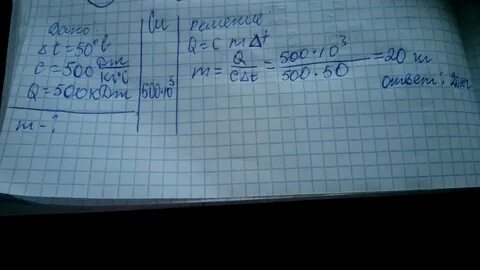 Дано:
Δt = 50°C
C = 500 Дж/кг°C
Q = 500 кДж
m - ?
Си
500·10³
решение
Q = C m Δt
m = Q/CΔt = 500·10³/500·50 = 20 кг
ответ: 20кг